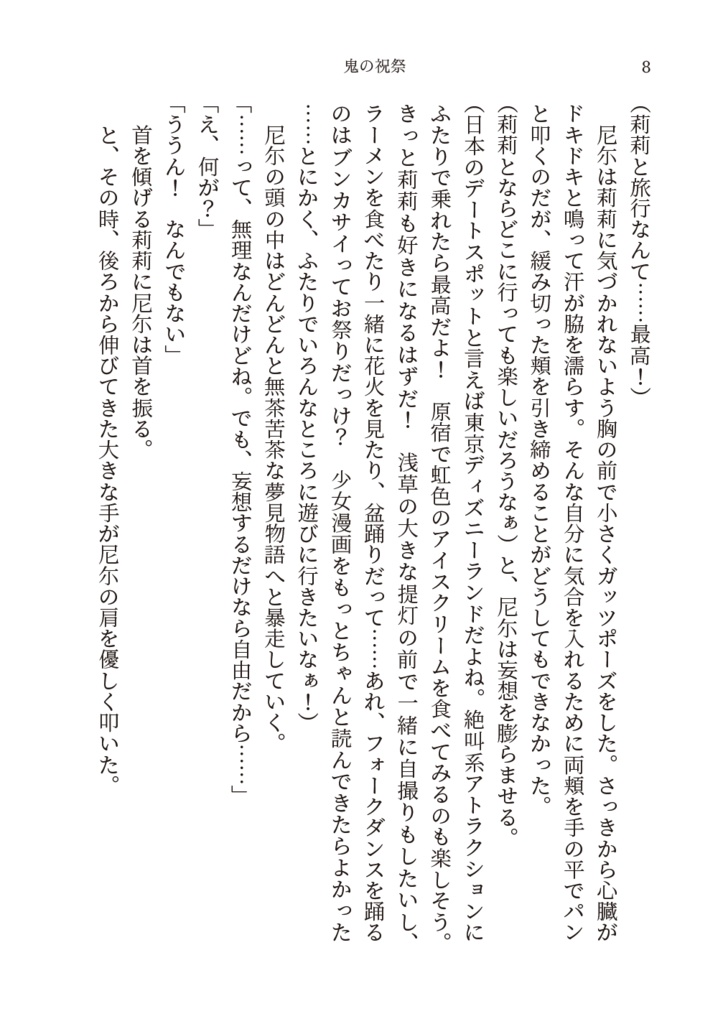 鬼の祝祭
8
(莉莉と旅行なんて……最高！)
　尼尓は莉莉に気づかれないよう胸の前で小さくガッツポーズをした。さっきから心臓が
ドキドキと鳴って汗が脇を濡らす。そんな自分に気合を入れるために両頬を手の平でパン
と叩くのだが、緩み切った頬を引き締めることがどうしてもできなかった。
(莉莉とならどこに行っても楽しいだろうなぁ)と、尼尓は妄想を膨らませる。
(日本のデートスポットと言えば東京ディズニーランドだよね。絶叫系アトラクションに
ふたりで乗れたら最高だよ！　原宿で虹色のアイスクリームを食べてみるのも楽しそう。
きっと莉莉も好きになるはずだ！　浅草の大きな提灯の前で一緒に自撮りもしたいし、
ラーメンを食べたり一緒に花火を見たり、盆踊りだって……あれ、フォークダンスを踊る
のはブンカサイってお祭りだっけ？　少女漫画をもっとちゃんと読んできたらよかった
……とにかく、ふたりでいろんなところに遊びに行きたいなぁ！)
　尼尓の頭の中はどんどんと無茶苦茶な夢見物語へと暴走していく。
「……って、無理なんだけどね。でも、妄想するだけなら自由だから……」
「え、何が？」
「ううん！　なんでもない」
　首を傾げる莉莉に尼尓は首を振る。
　と、その時、後ろから伸びてきた大きな手が尼尓の肩を優しく叩いた。